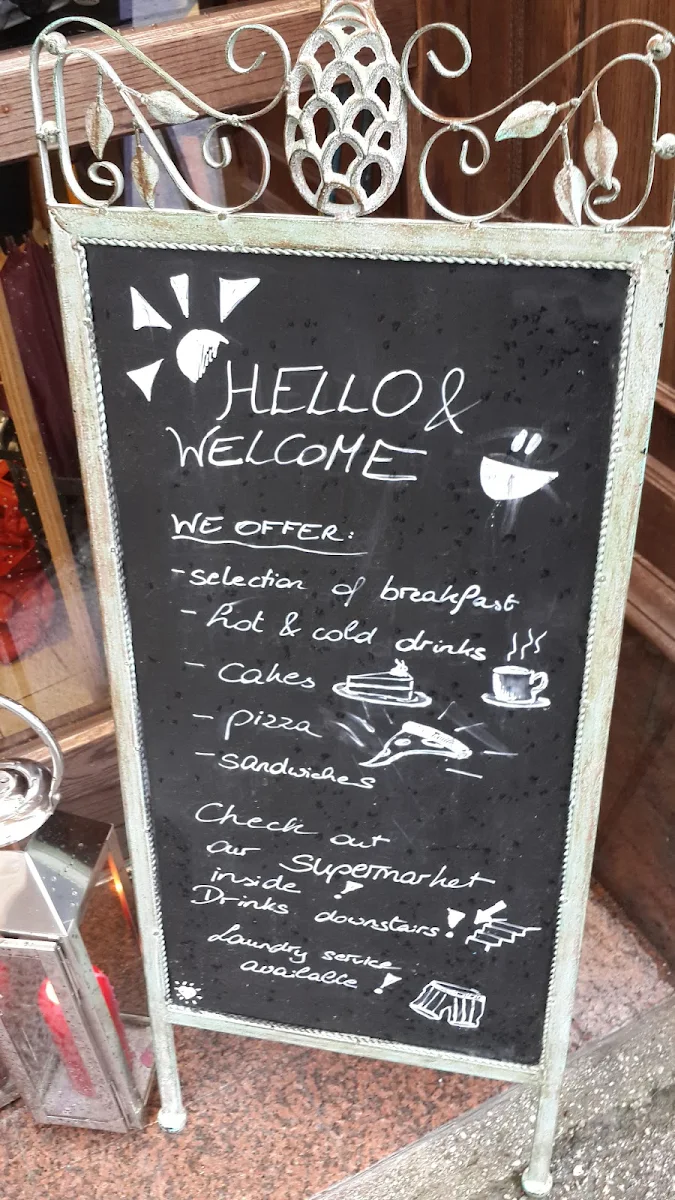 HELLO &
WELCOME
WE OFFER:
- selection of breakfast
- hot & cold drinks
- cakes
- pizza
- sandwiches
Check out
our Supermarket
inside !
Drinks downstairs!
Laundry service
available !